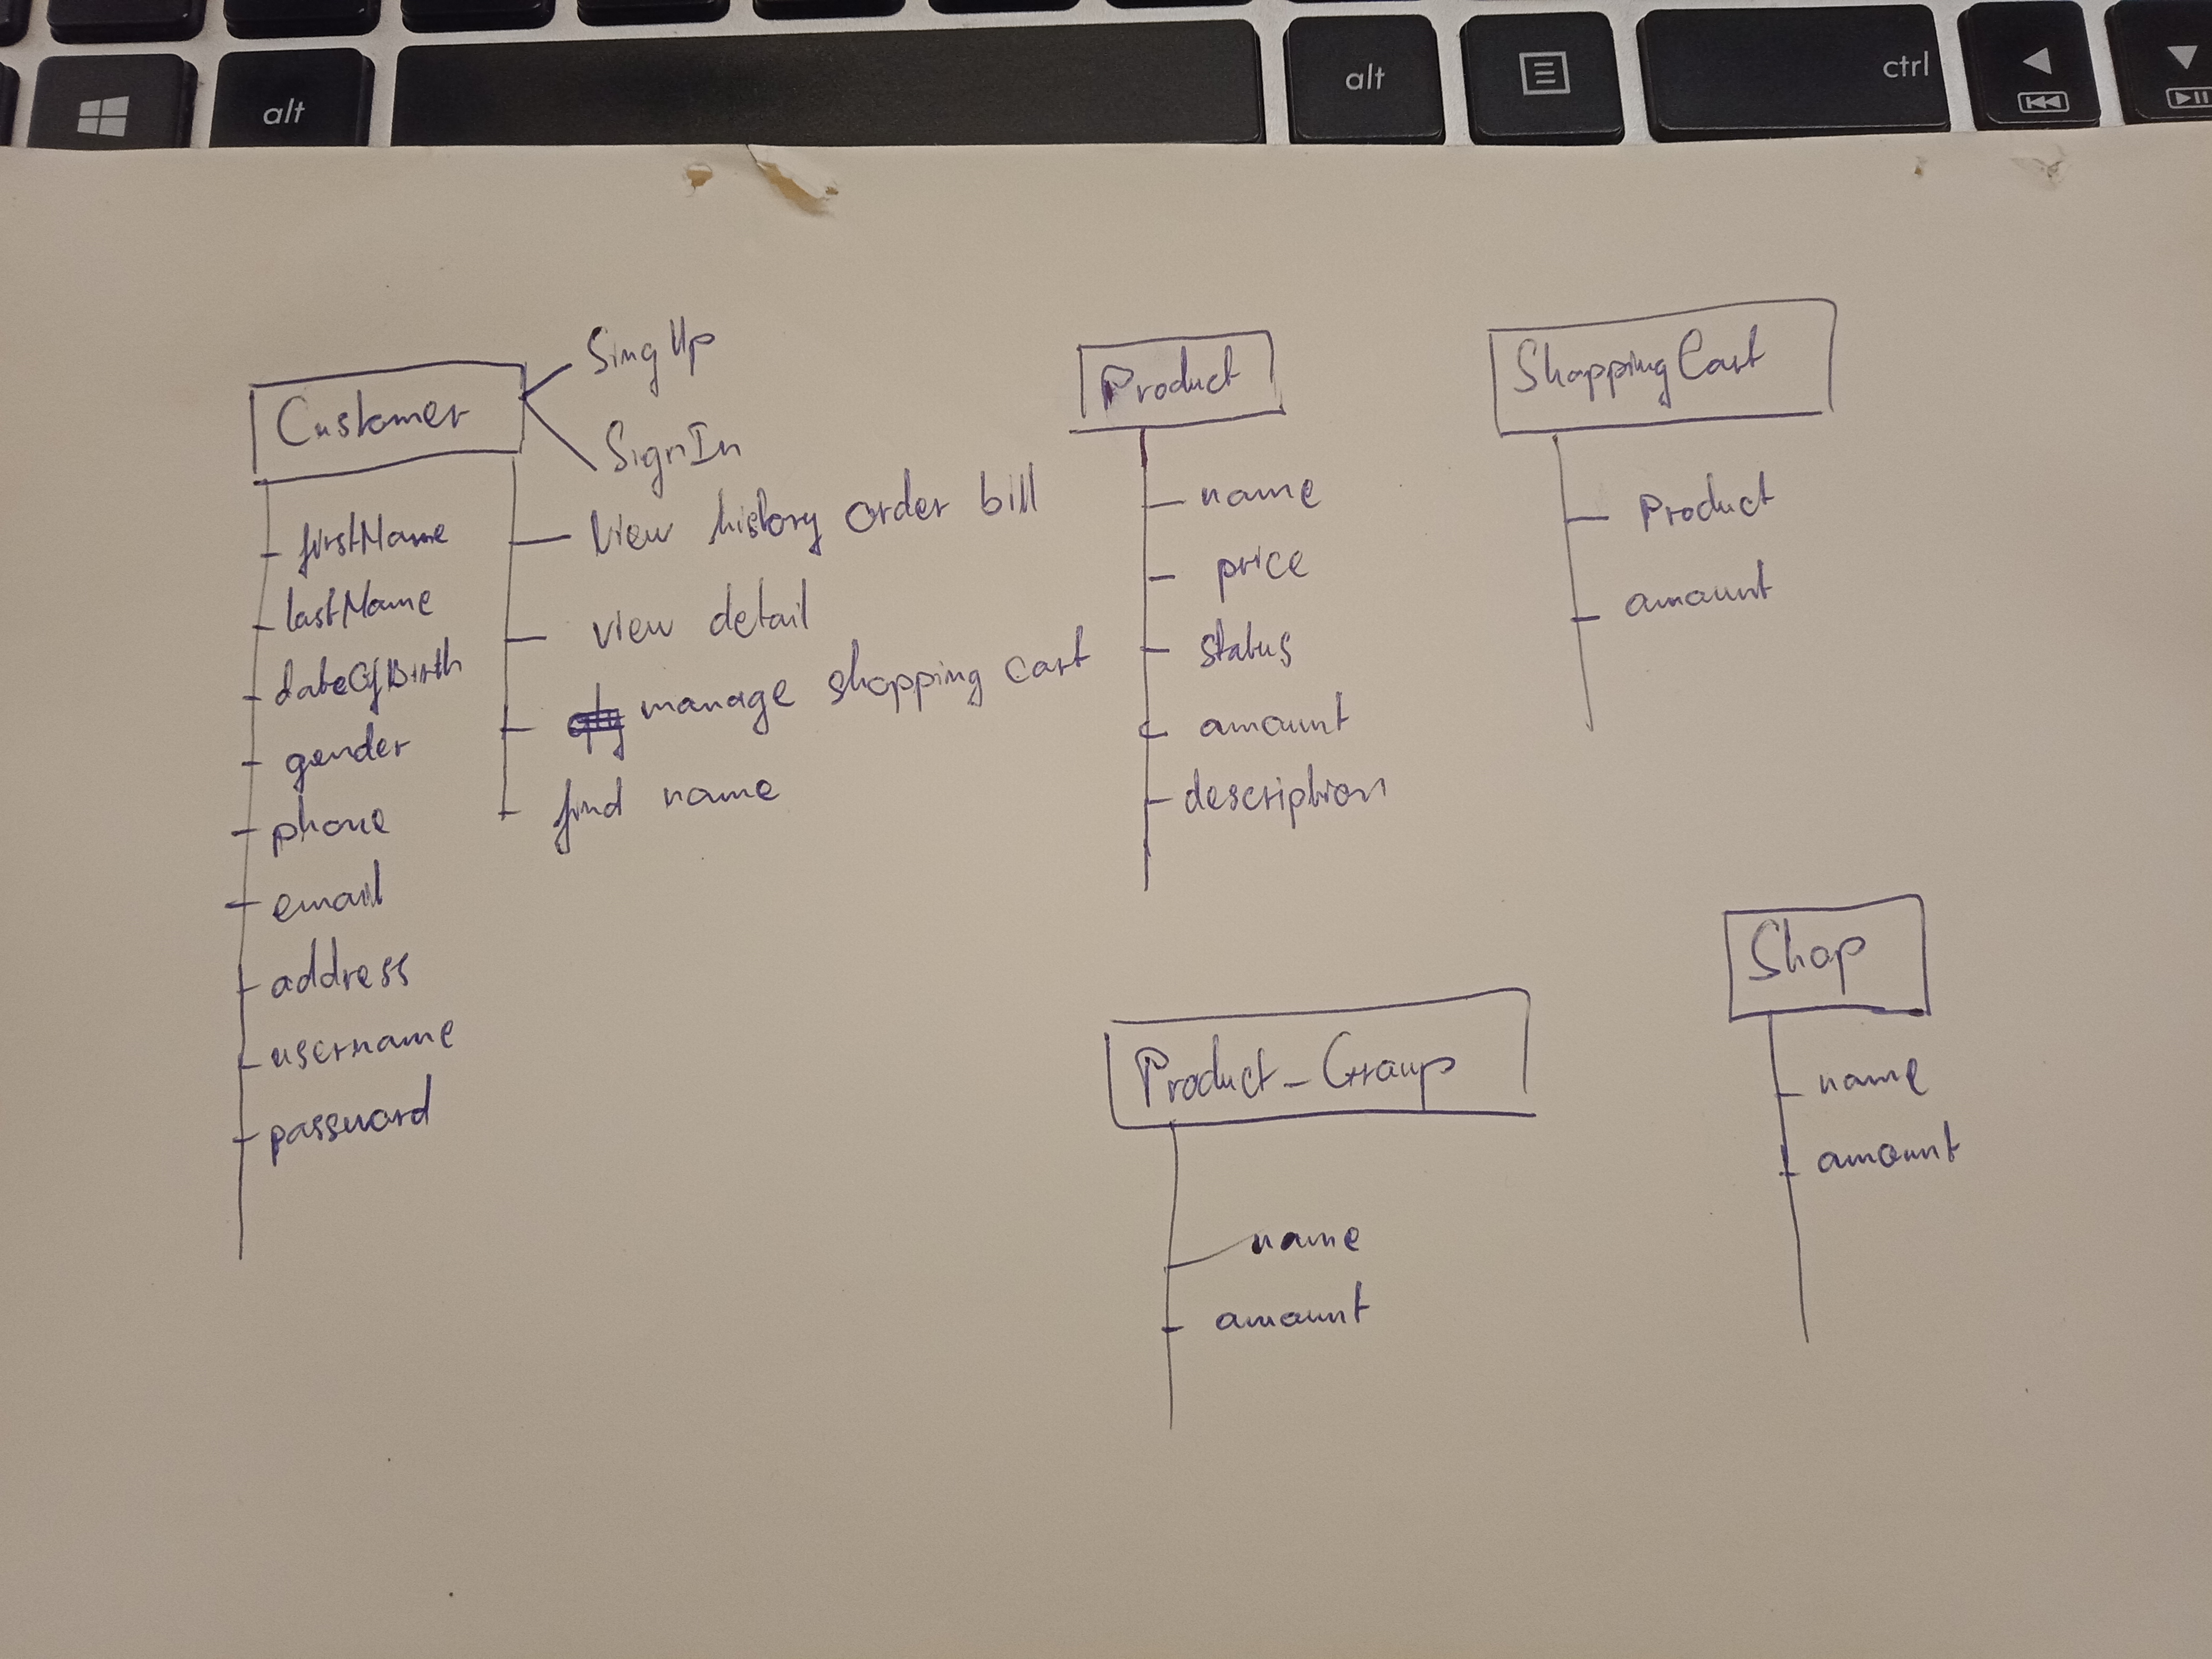 alt
alt
ctrl
Customer
Sing Up
SignIn
firstName
lastName
dateOfBirth
gender
phone
email
address
username
password
View history order bill
view detail
manage shopping cart
find name
Product
name
price
status
amount
description
Shopping Cart
Product
amount
Product_Group
name
amount
Shop
name
amount